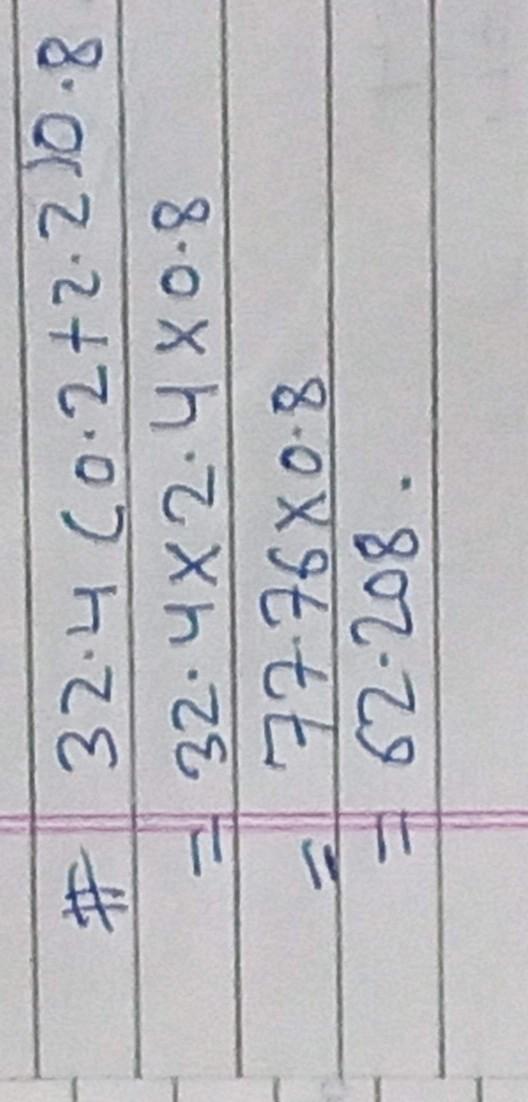 # 32.4(0.2+2.2)0.8
= 32.4×2.4×0.8
= 77.76×0.8
= 62.208.